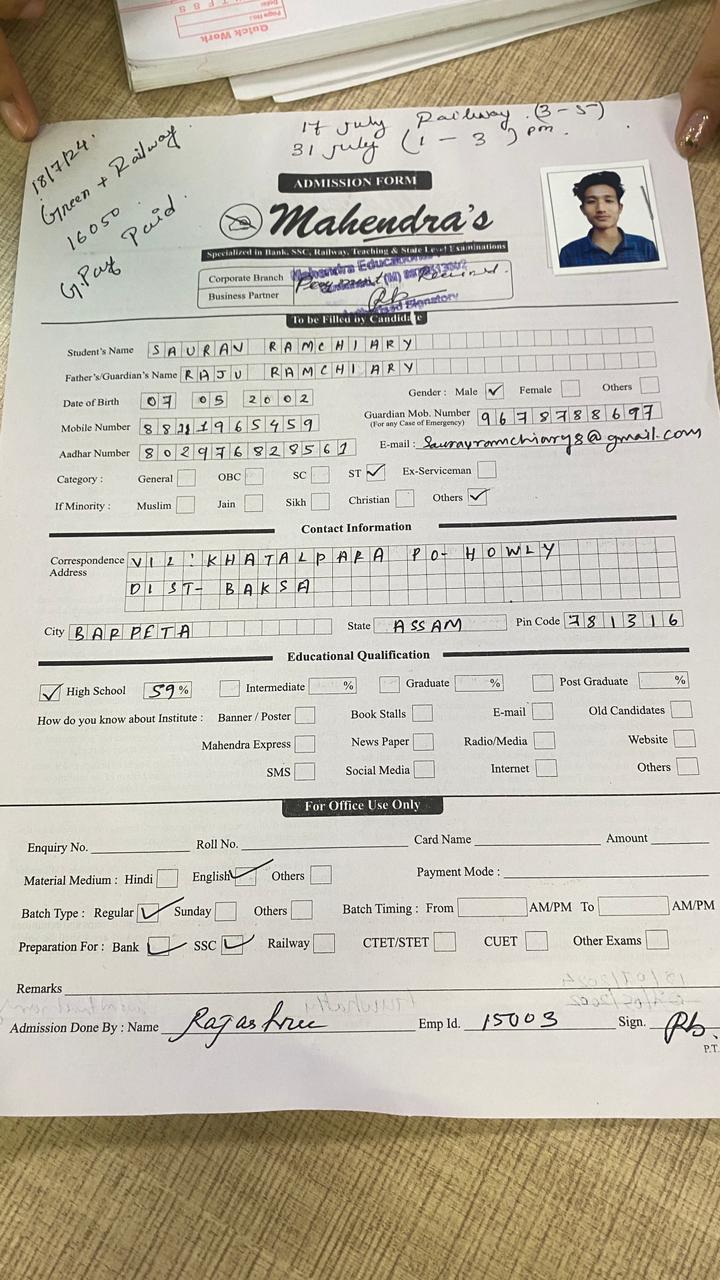 Quick Work
17 July Railway (3-5)
31 July (1-3) pm.
18/7/24.
Green + Railway
16050
G.Pay Paid
ADMISSION FORM
Mahendra's
Specialized in Bank, SSC, Railway, Teaching & State Level Examinations
Corporate Branch
Business Partner
Mahendra Educational
Received.
Signatory
To be Filled by Candidate
Student's Name SAURAV RAMCHIARY
Father's/Guardian's Name RAJU RAMCHIARY
Date of Birth 07 05 2002 Gender : Male ✓ Female Others
Mobile Number Guardian Mob. Number 9678788697
(For any Case of Emergency)
Aadhar Number 802976828561 E-mail : Sauravramchiary8@gmail.com
Category : General OBC SC ST ✓ Ex-Serviceman
If Minority : Muslim Jain Sikh Christian Others ✓
Contact Information
Correspondence Address VIL: KHATALPARA PO- HOWLY
DIST- BAKSA
City BARPETA State ASSAM Pin Code 781316
Educational Qualification
✓ High School 59% Intermediate % Graduate % Post Graduate %
How do you know about Institute : Banner / Poster Book Stalls E-mail Old Candidates
Mahendra Express News Paper Radio/Media Website
SMS Social Media Internet Others
For Office Use Only
Enquiry No. Roll No. Card Name Amount
Material Medium : Hindi English ✓ Others Payment Mode :
Batch Type : Regular ✓ Sunday Others Batch Timing : From AM/PM To AM/PM
Preparation For : Bank ✓ SSC ✓ Railway CTET/STET CUET Other Exams
Remarks
Admission Done By : Name Rajashree Emp Id. 15003 Sign. Rb.
P.T.